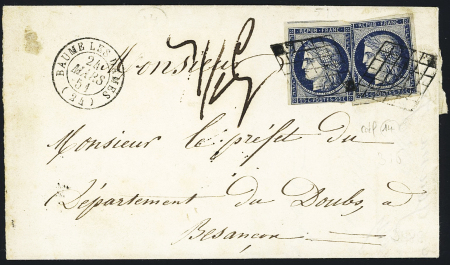 BAUME LES DAMES (24)
24
MARS
51
REPUB. FRANC.
REPUB. FRANC.
Monsieur
Monsieur le préfet du
Département du Doubs, à
Besançon